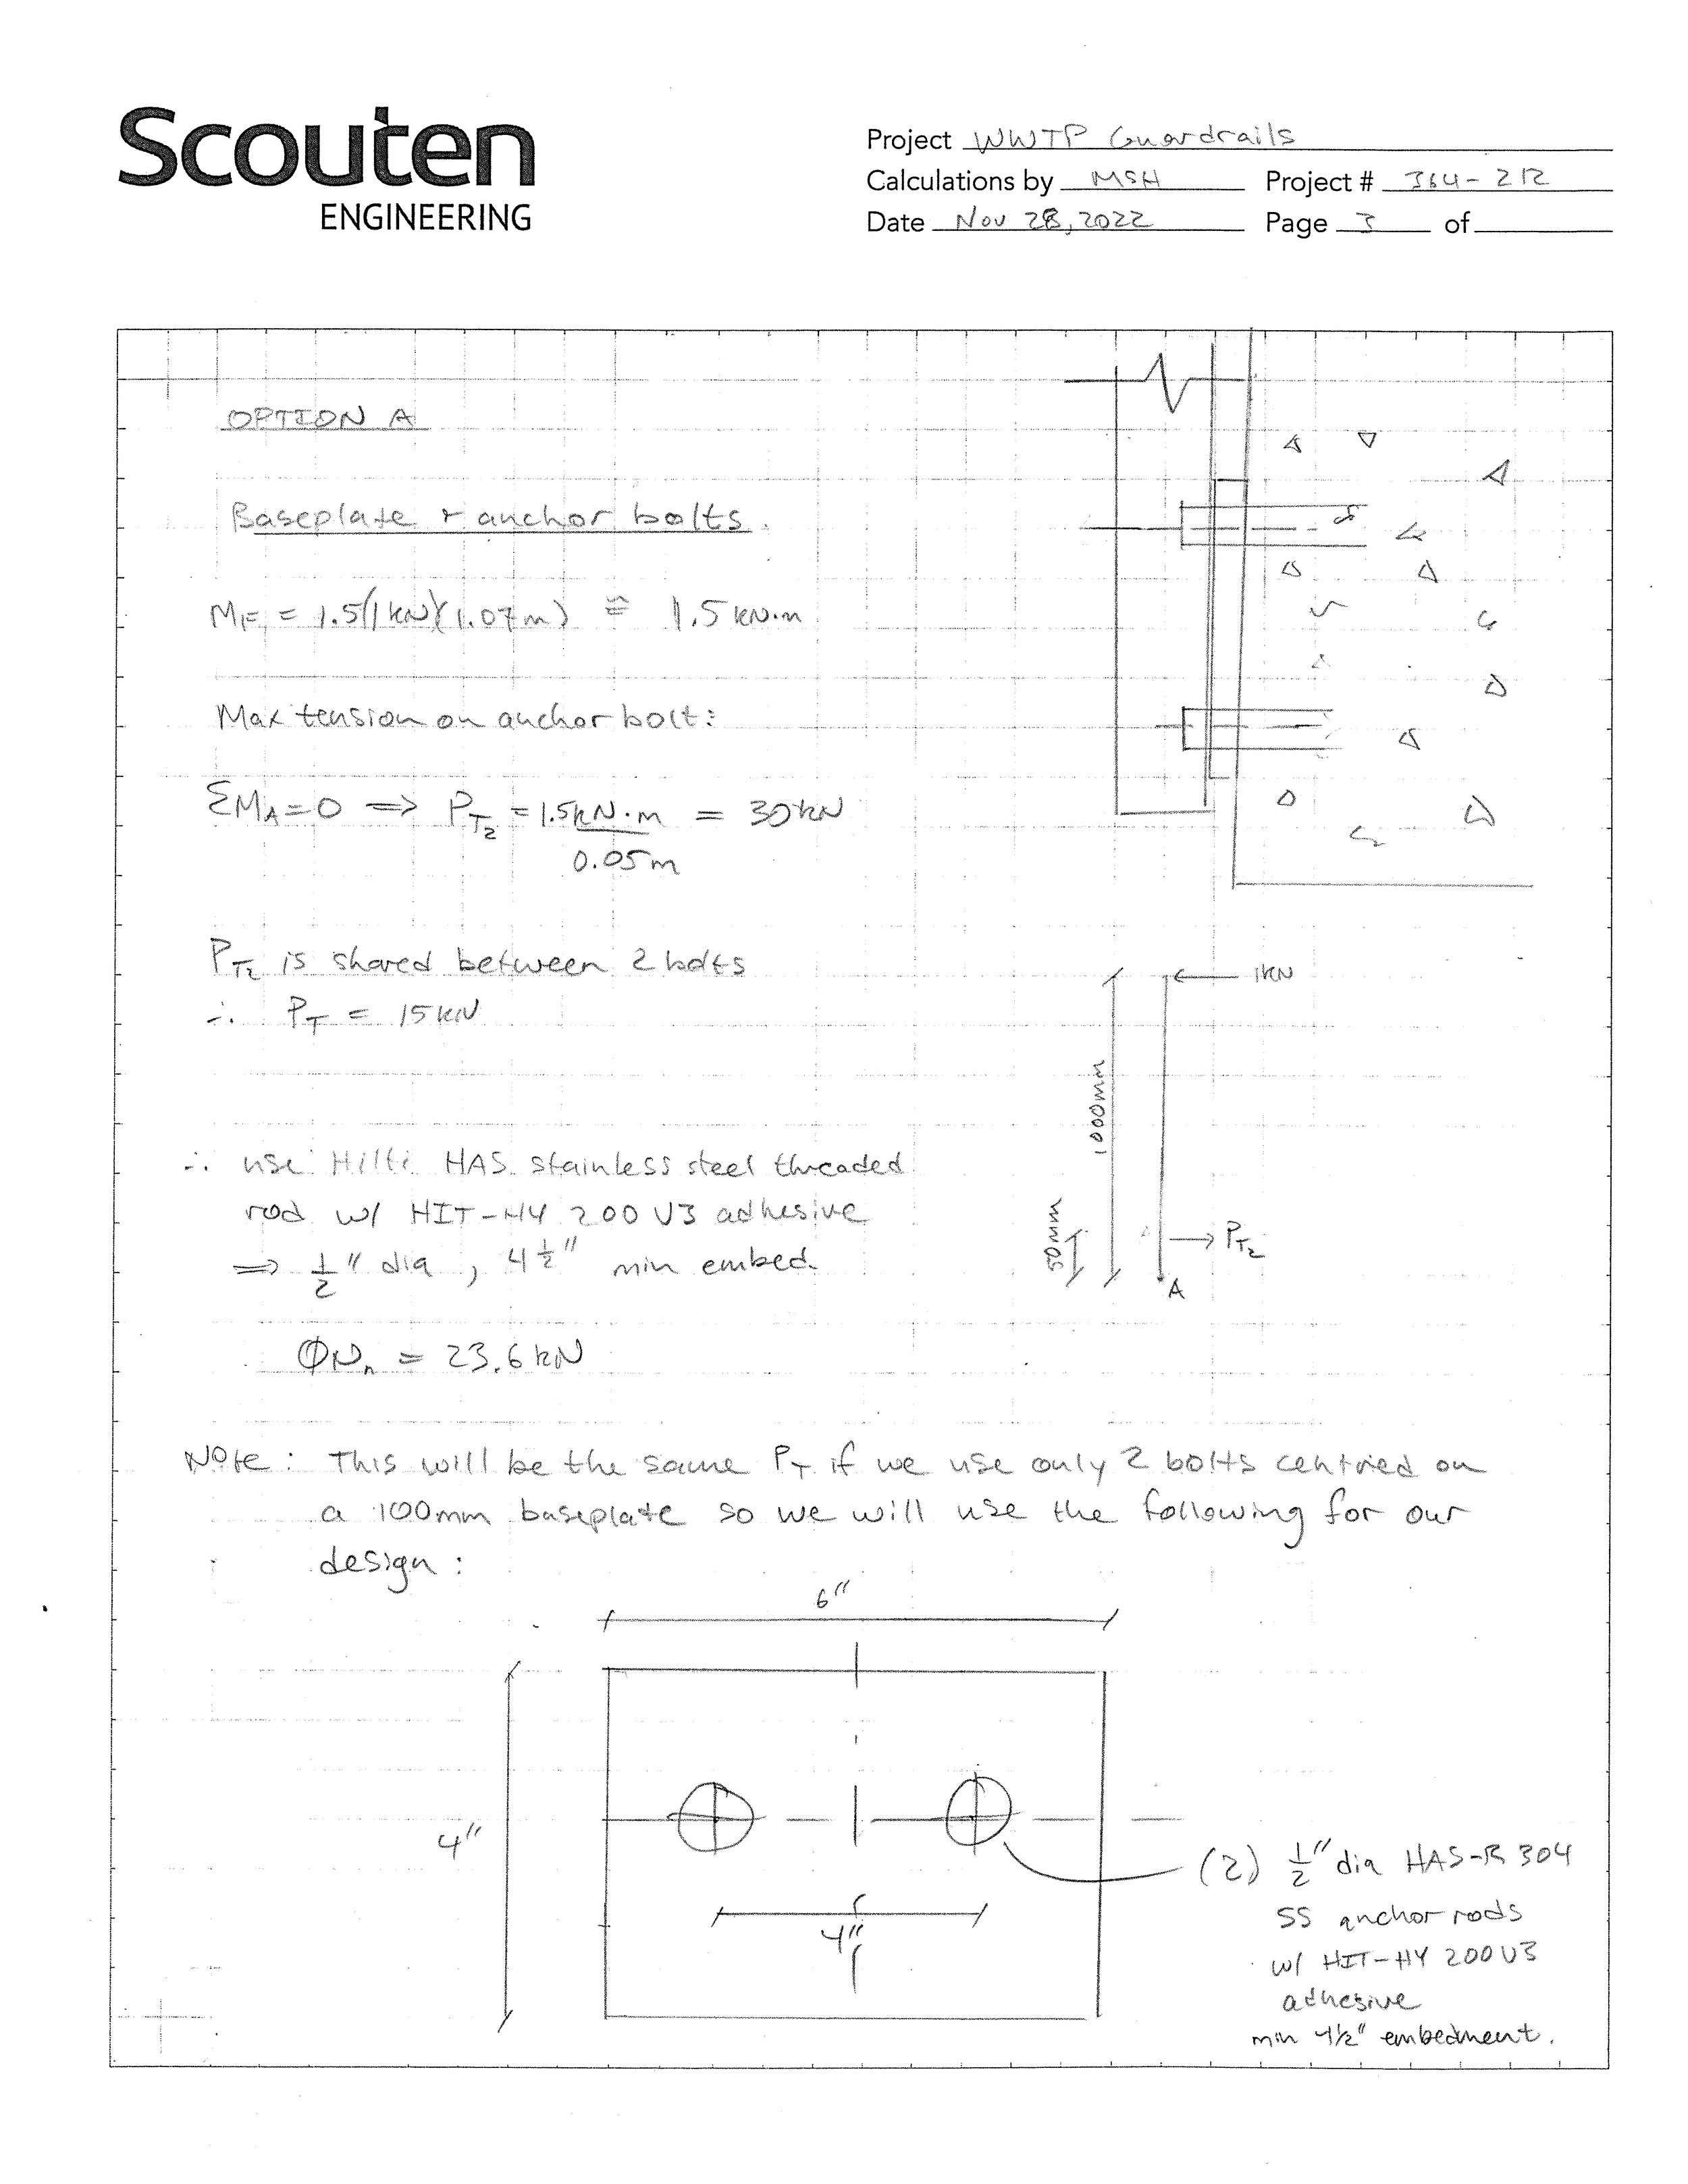 Scouten
ENGINEERING
Project WWTP Guardrails
Calculations by MSH Project # 364-212
Date Nov 28, 2022 Page 3 of
OPTION A
Baseplate + anchor bolts.
MF = 1.5(1kN)(1.07m) ≅ 1.5 kN·m
Max tension on anchor bolt:
ΣMA=0 ⇒ PT2 = 1.5kN·m = 30kN
0.05m
PT2 is shared between 2 bolts
∴ PT = 15kN
1kN
1000mm
50mm
PT2
A
∴ use Hilti HAS stainless steel threaded
rod w/ HIT-HY 200 V3 adhesive
⇒ 1/2" dia, 4 1/2" min embed.
ΦNn = 23.6kN
Note: This will be the same PT if we use only 2 bolts centried on
a 100mm baseplate so we will use the following for our
design:
6"
4"
4"
(2) 1/2" dia HAS-R 304
SS anchor rods
w/ HIT-HY 200 V3
adhesive
min 4 1/2" embedment.